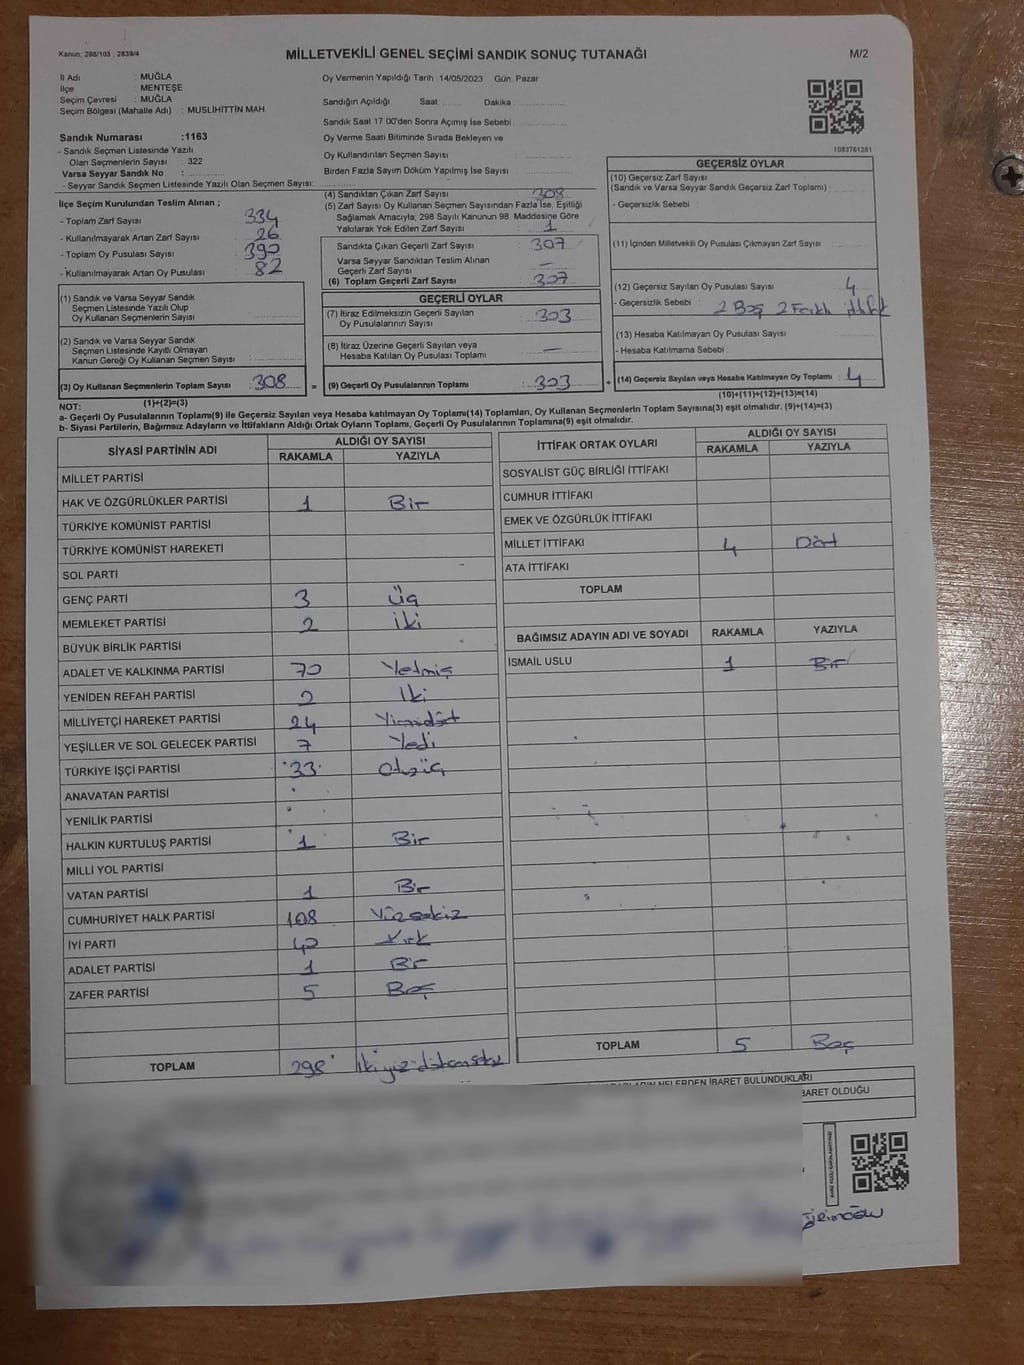 Kanun; 298/105 , 2839/4
MİLLETVEKİLİ GENEL SEÇİMİ SANDIK SONUÇ TUTANAĞI
M/2
İl Adı : MUĞLA
İlçe : MENTEŞE
Seçim Çevresi : MUĞLA
Seçim Bölgesi (Mahalle Adı) : MUSLİHİTTİN MAH
Sandık Numarası :1163
- Sandık Seçmen Listesinde Yazılı
Olan Seçmenlerin Sayısı : 322
Varsa Seyyar Sandık No :
- Seyyar Sandık Seçmen Listesinde Yazılı Olan Seçmen Sayısı:
Oy Vermenin Yapıldığı Tarih : 14/05/2023 Gün: Pazar
Sandığın Açıldığı Saat: Dakika :
Sandık Saat 17:00'den Sonra Açımış İse Sebebi :
Oy Verme Saati Bitiminde Sırada Bekleyen ve
Oy Kullandırılan Seçmen Sayısı :
Birden Fazla Sayım Döküm Yapılmış İse Sayısı :
1083761281
İlçe Seçim Kurulundan Teslim Alınan ;
- Toplam Zarf Sayısı : 334
- Kullanılmayarak Artan Zarf Sayısı : 26
- Toplam Oy Pusulası Sayısı : 390
- Kullanılmayarak Artan Oy Pusulası : 82
(1) Sandık ve Varsa Seyyar Sandık
Seçmen Listesinde Yazılı Olup
Oy Kullanan Seçmenlerin Sayısı :
(2) Sandık ve Varsa Seyyar Sandık
Seçmen Listesinde Kayıtlı Olmayan
Kanun Gereği Oy Kullanan Seçmen Sayısı :
(3) Oy Kullanan Seçmenlerin Toplam Sayısı : 308 =
(1)+(2)=(3)
(4) Sandıktan Çıkan Zarf Sayısı : 308
(5) Zarf Sayısı Oy Kullanan Seçmen Sayısından Fazla İse, Eşitliği
Sağlamak Amacıyla; 298 Sayılı Kanunun 98. Maddesine Göre
Yakılarak Yok Edilen Zarf Sayısı : 1
Sandıkta Çıkan Geçerli Zarf Sayısı : 307
Varsa Seyyar Sandıktan Teslim Alınan
Geçerli Zarf Sayısı : —
(6) Toplam Geçerli Zarf Sayısı : 307
GEÇERLİ OYLAR
(7) İtiraz Edilmeksizin Geçerli Sayılan
Oy Pusulalarının Sayısı : 303
(8) İtiraz Üzerine Geçerli Sayılan veya
Hesaba Katılan Oy Pusulası Toplamı : —
(9) Geçerli Oy Pusulalarının Toplamı : 303 +
GEÇERSİZ OYLAR
(10) Geçersiz Zarf Sayısı
(Sandık ve Varsa Seyyar Sandık Geçersiz Zarf Toplamı) :
- Geçersizlik Sebebi :
(11) İçinden Milletvekili Oy Pusulası Çıkmayan Zarf Sayısı :
(12) Geçersiz Sayılan Oy Pusulası Sayısı : 4
- Geçersizlik Sebebi : 2 Boş 2 Farklı ittifak
(13) Hesaba Katılmayan Oy Pusulası Sayısı :
- Hesaba Katılmama Sebebi :
(14) Geçersiz Sayılan veya Hesaba Katılmayan Oy Toplamı : 4
(10)+(11)+(12)+(13)=(14)
NOT:
a- Geçerli Oy Pusulalarının Toplamı(9) ile Geçersiz Sayılan veya Hesaba katılmayan Oy Toplamı(14) Toplamları, Oy Kullanan Seçmenlerin Toplam Sayısına(3) eşit olmalıdır. (9)+(14)=(3)
b- Siyasi Partilerin, Bağımsız Adayların ve İttifakların Aldığı Ortak Oyların Toplamı, Geçerli Oy Pusulalarının Toplamına(9) eşit olmalıdır.
SİYASİ PARTİNİN ADI ALDIĞI OY SAYISI
RAKAMLA YAZIYLA
MİLLET PARTİSİ
HAK VE ÖZGÜRLÜKLER PARTİSİ 1 Bir
TÜRKİYE KOMÜNİST PARTİSİ
TÜRKİYE KOMÜNİST HAREKETİ
SOL PARTİ
GENÇ PARTİ 3 Üç
MEMLEKET PARTİSİ 2 İki
BÜYÜK BİRLİK PARTİSİ
ADALET VE KALKINMA PARTİSİ 70 Yetmiş
YENİDEN REFAH PARTİSİ 2 İki
MİLLİYETÇİ HAREKET PARTİSİ 24 Yirmidört
YEŞİLLER VE SOL GELECEK PARTİSİ 7 Yedi
TÜRKİYE İŞÇİ PARTİSİ 33 Otuzüç
ANAVATAN PARTİSİ
YENİLİK PARTİSİ
HALKIN KURTULUŞ PARTİSİ 1 Bir
MİLLİ YOL PARTİSİ
VATAN PARTİSİ 1 Bir
CUMHURİYET HALK PARTİSİ 108 Yüzsekiz
İYİ PARTİ 40 Kırk
ADALET PARTİSİ 1 Bir
ZAFER PARTİSİ 5 Beş
TOPLAM 298 İkiyüzdoksansekiz
İTTİFAK ORTAK OYLARI ALDIĞI OY SAYISI
RAKAMLA YAZIYLA
SOSYALİST GÜÇ BİRLİĞİ İTTİFAKI
CUMHUR İTTİFAKI
EMEK VE ÖZGÜRLÜK İTTİFAKI
MİLLET İTTİFAKI 4 Dört
ATA İTTİFAKI
TOPLAM
BAĞIMSIZ ADAYIN ADI VE SOYADI RAKAMLA YAZIYLA
İSMAİL USLU 1 Bir
TOPLAM 5 Beş
NELERDEN İBARET BULUNDUKLARI
İBARET OLDUĞU